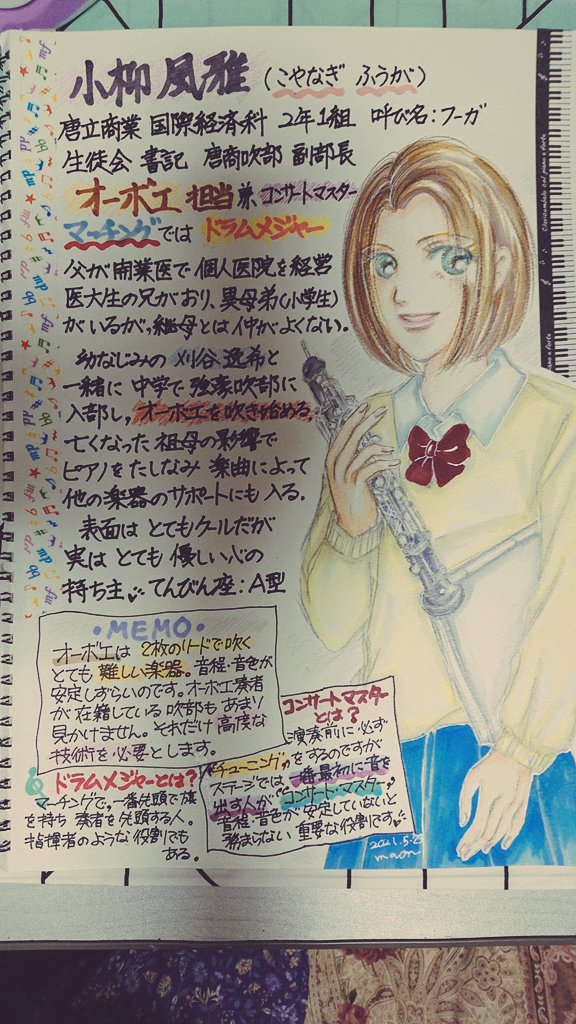 小柳 風雅 (こやなぎ ふうが)
唐立商業 国際経済科 2年1組 呼び名:フーガ
生徒会 書記 唐商吹部 副部長
オーボエ 担当 兼、コンサートマスター
マーチングでは ドラムメジャー
父が開業医で個人医院を経営
医大生の兄がおり、異母弟(小学生)
がいるが、継母とは仲がよくない。
幼なじみの 刈谷 逸希と
一緒に 中学で 強豪吹部に
入部し、オーボエを吹き始める。
亡くなった 祖母の影響で
ピアノを たしなみ 楽曲によって
他の楽器のサポートにも 入る。
表面は とてもクールだが
実は とても 優しい心の
持ち主 てんびん座:A型
・MEMO・
オーボエは 2枚のリードで吹く
とても 難しい楽器。音程・音色が
安定しずらいのです。オーボエ奏者
が 在籍している 吹部も あまり
見かけません。それだけ 高度な
技術を 必要と します。
ドラムメジャーとは?
マーチングで、一番先頭で旗
を持ち 奏者を先頭する人。
指揮者のような役割でも
ある。
コンサートマスター
とは?
演奏前に必ず
"チューニング"をするのですが
ステージでは、一番最初に音を
出す人が"コンサート・マスター"
音程・音色が 安定していないと
務まらない 重要な役割です
2021.5.23
maom